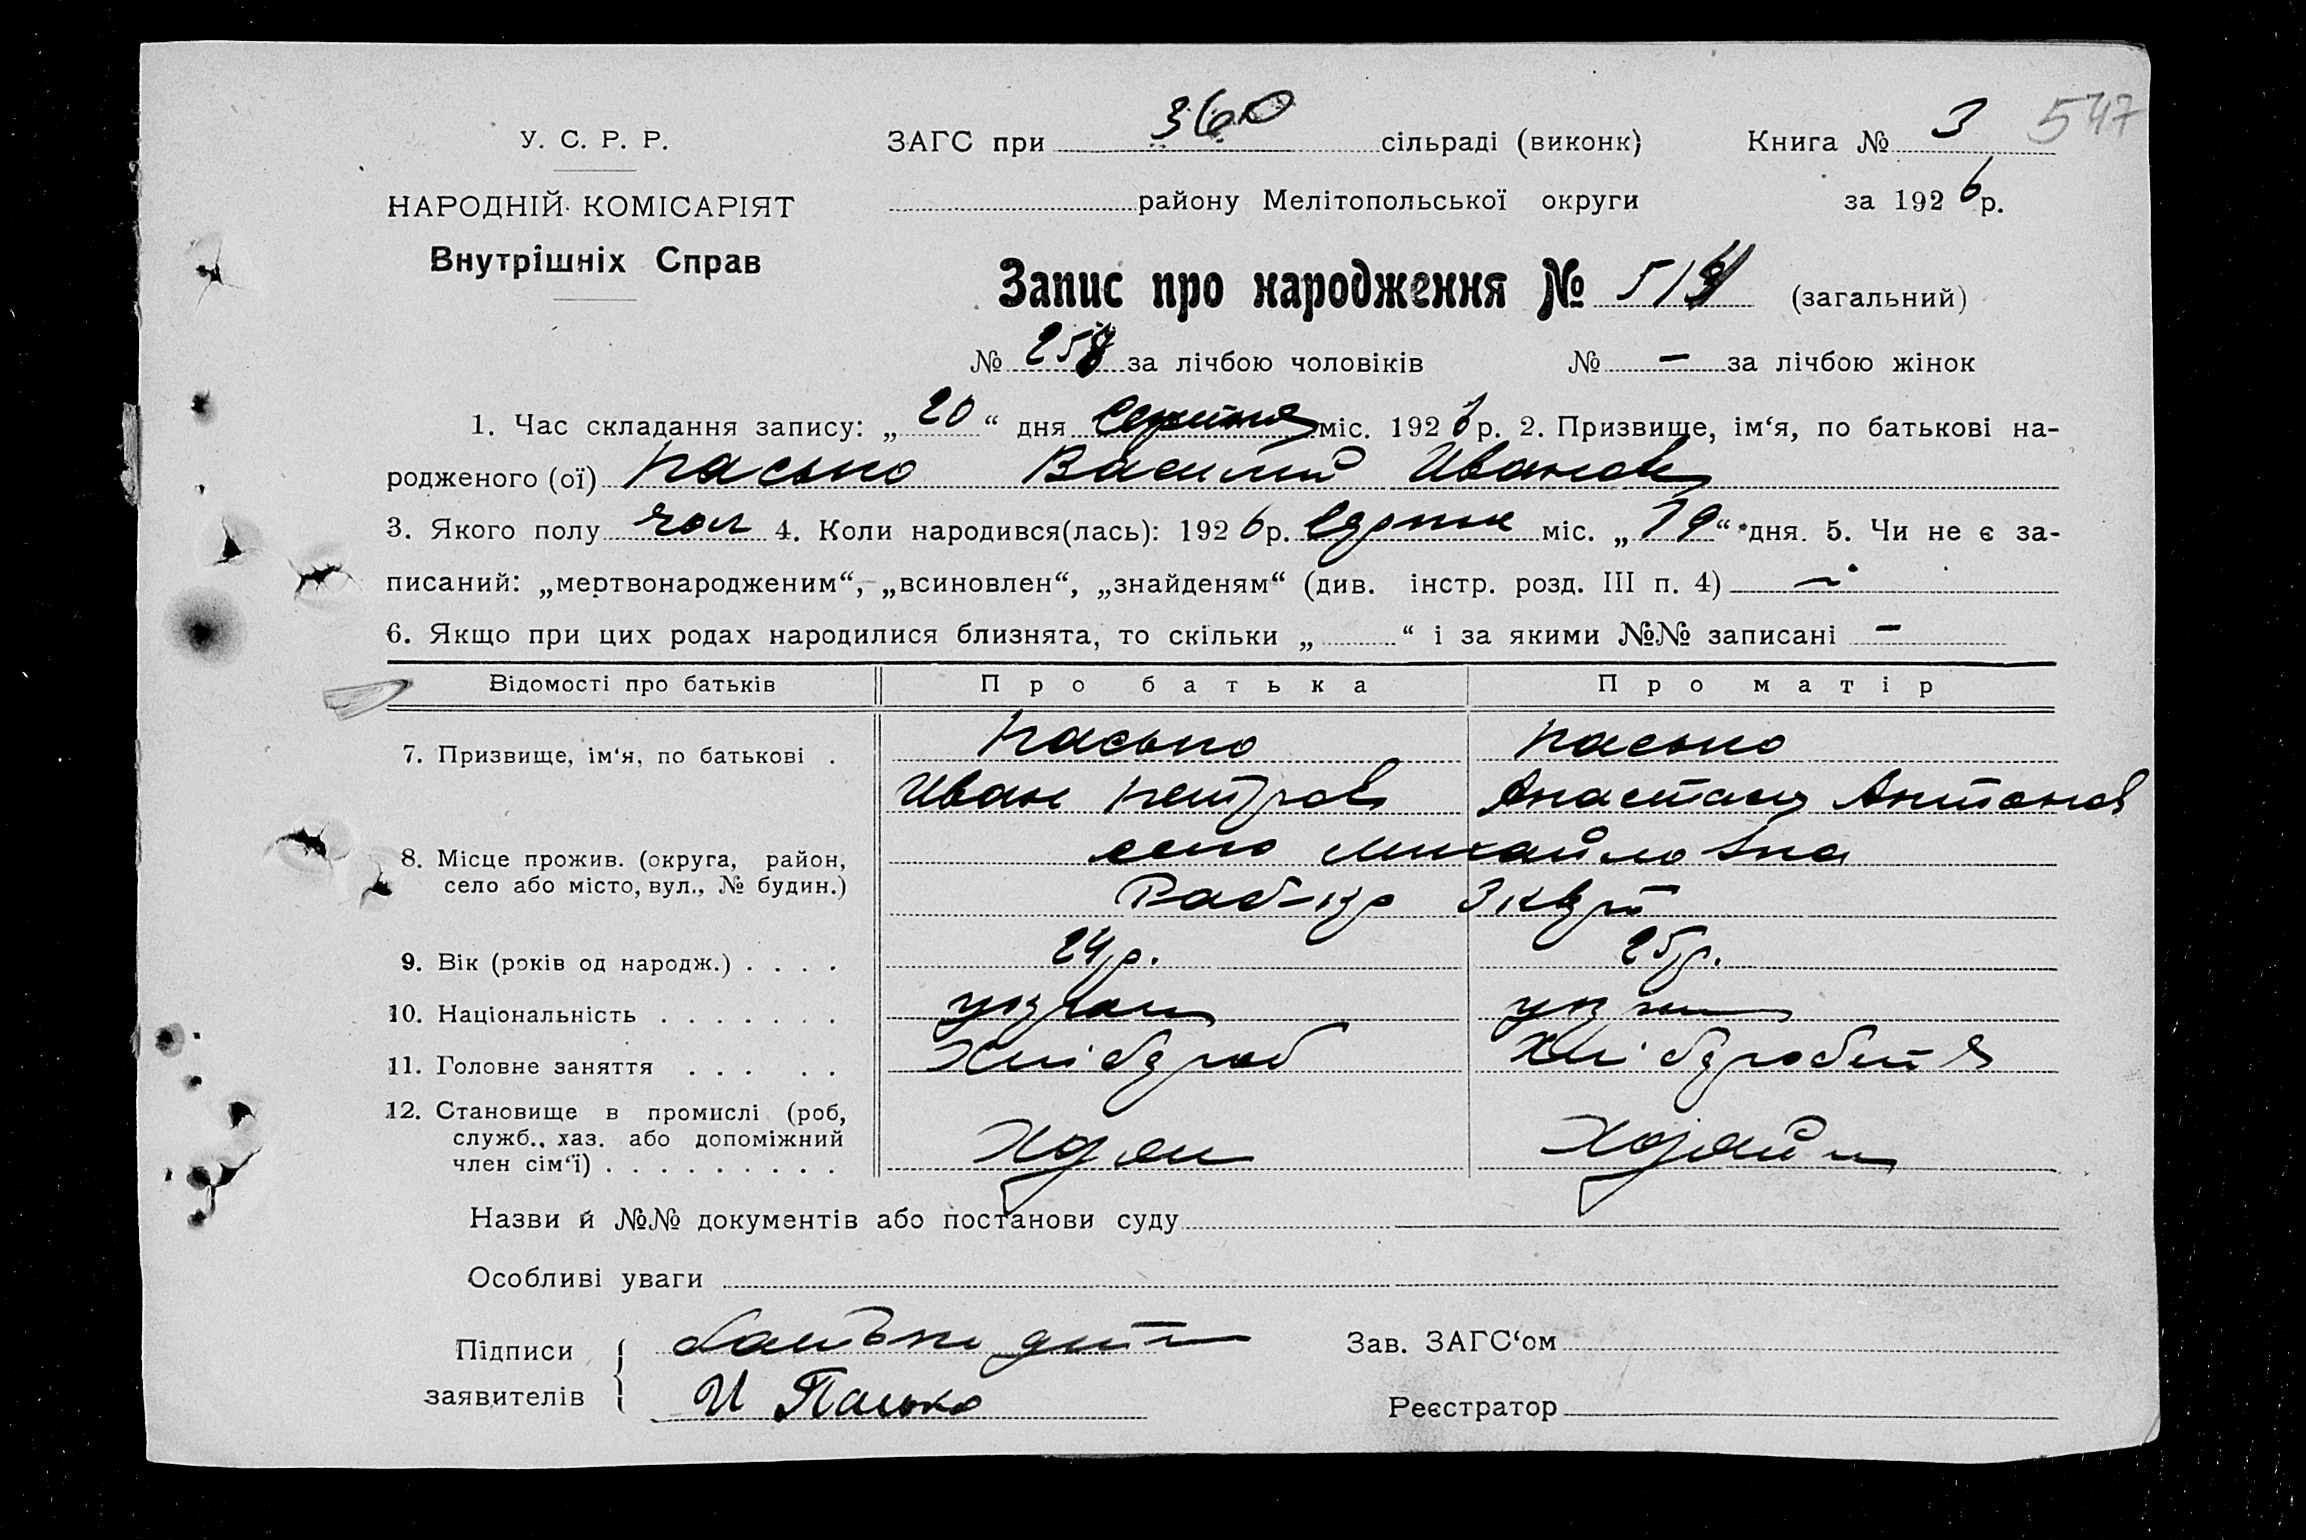 У. С. Р. Р.
НАРОДНІЙ КОМІСАРІЯТ
Внутрішніх Справ
ЗАГС при 360 сільраді (виконк)
району Мелітопольської округи
Книга № 3 547
за 1926 р.
Запис про народження № 514 (загальний)
№ 258 за лічбою чоловіків № — за лічбою жінок
1. Час складання запису: „ 20 “ дня Серпня міс. 1926 р. 2. Призвище, ім‘я, по батькові на-
родженого (ої) Пасько Василий Иванов
3. Якого полу чол 4. Коли народився(лась): 1926 р. Серпня міс. „ 19 “ дня. 5. Чи не є за-
писаний: „мертвонародженим“, „всиновлен“, „знайденям“ (див. інстр. розд. III п. 4) —
6. Якщо при цих родах народилися близнята, то скільки „ “ і за якими №№ записані —
Відомості про батьків Про батька Про матір
7. Призвище, ім‘я, по батькові . Пасько Пасько
Иван Петров Анастасия Антонов
8. Місце прожив. (округа, район, село Михайловка
село або місто, вул., № будин.)
3 кварт
9. Вік (років од народж.) . . . . 24 р. 25 р.
10. Національність . . . . . . .
11. Головне заняття . . . . . Хлібороб Хлібороб
12. Становище в промислі (роб,
служб., хаз. або допоміжний
член сім‘ї) . . . . . . . . . Хозяин Хозяйн
Назви й №№ документів або постанови суду
Особливі уваги
Підписи
заявителів
батько дити
И Пасько
Зав. ЗАГС‘ом
Реєстратор